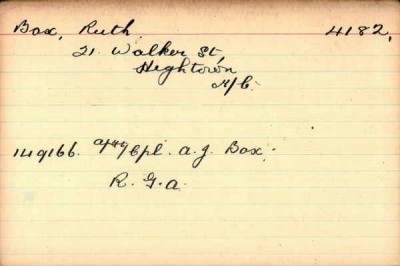 Box, Ruth. 4182,
21. Walker St,
Hightown
M/C.
149166. A/Cpl. A. J. Box.
R. G. A.